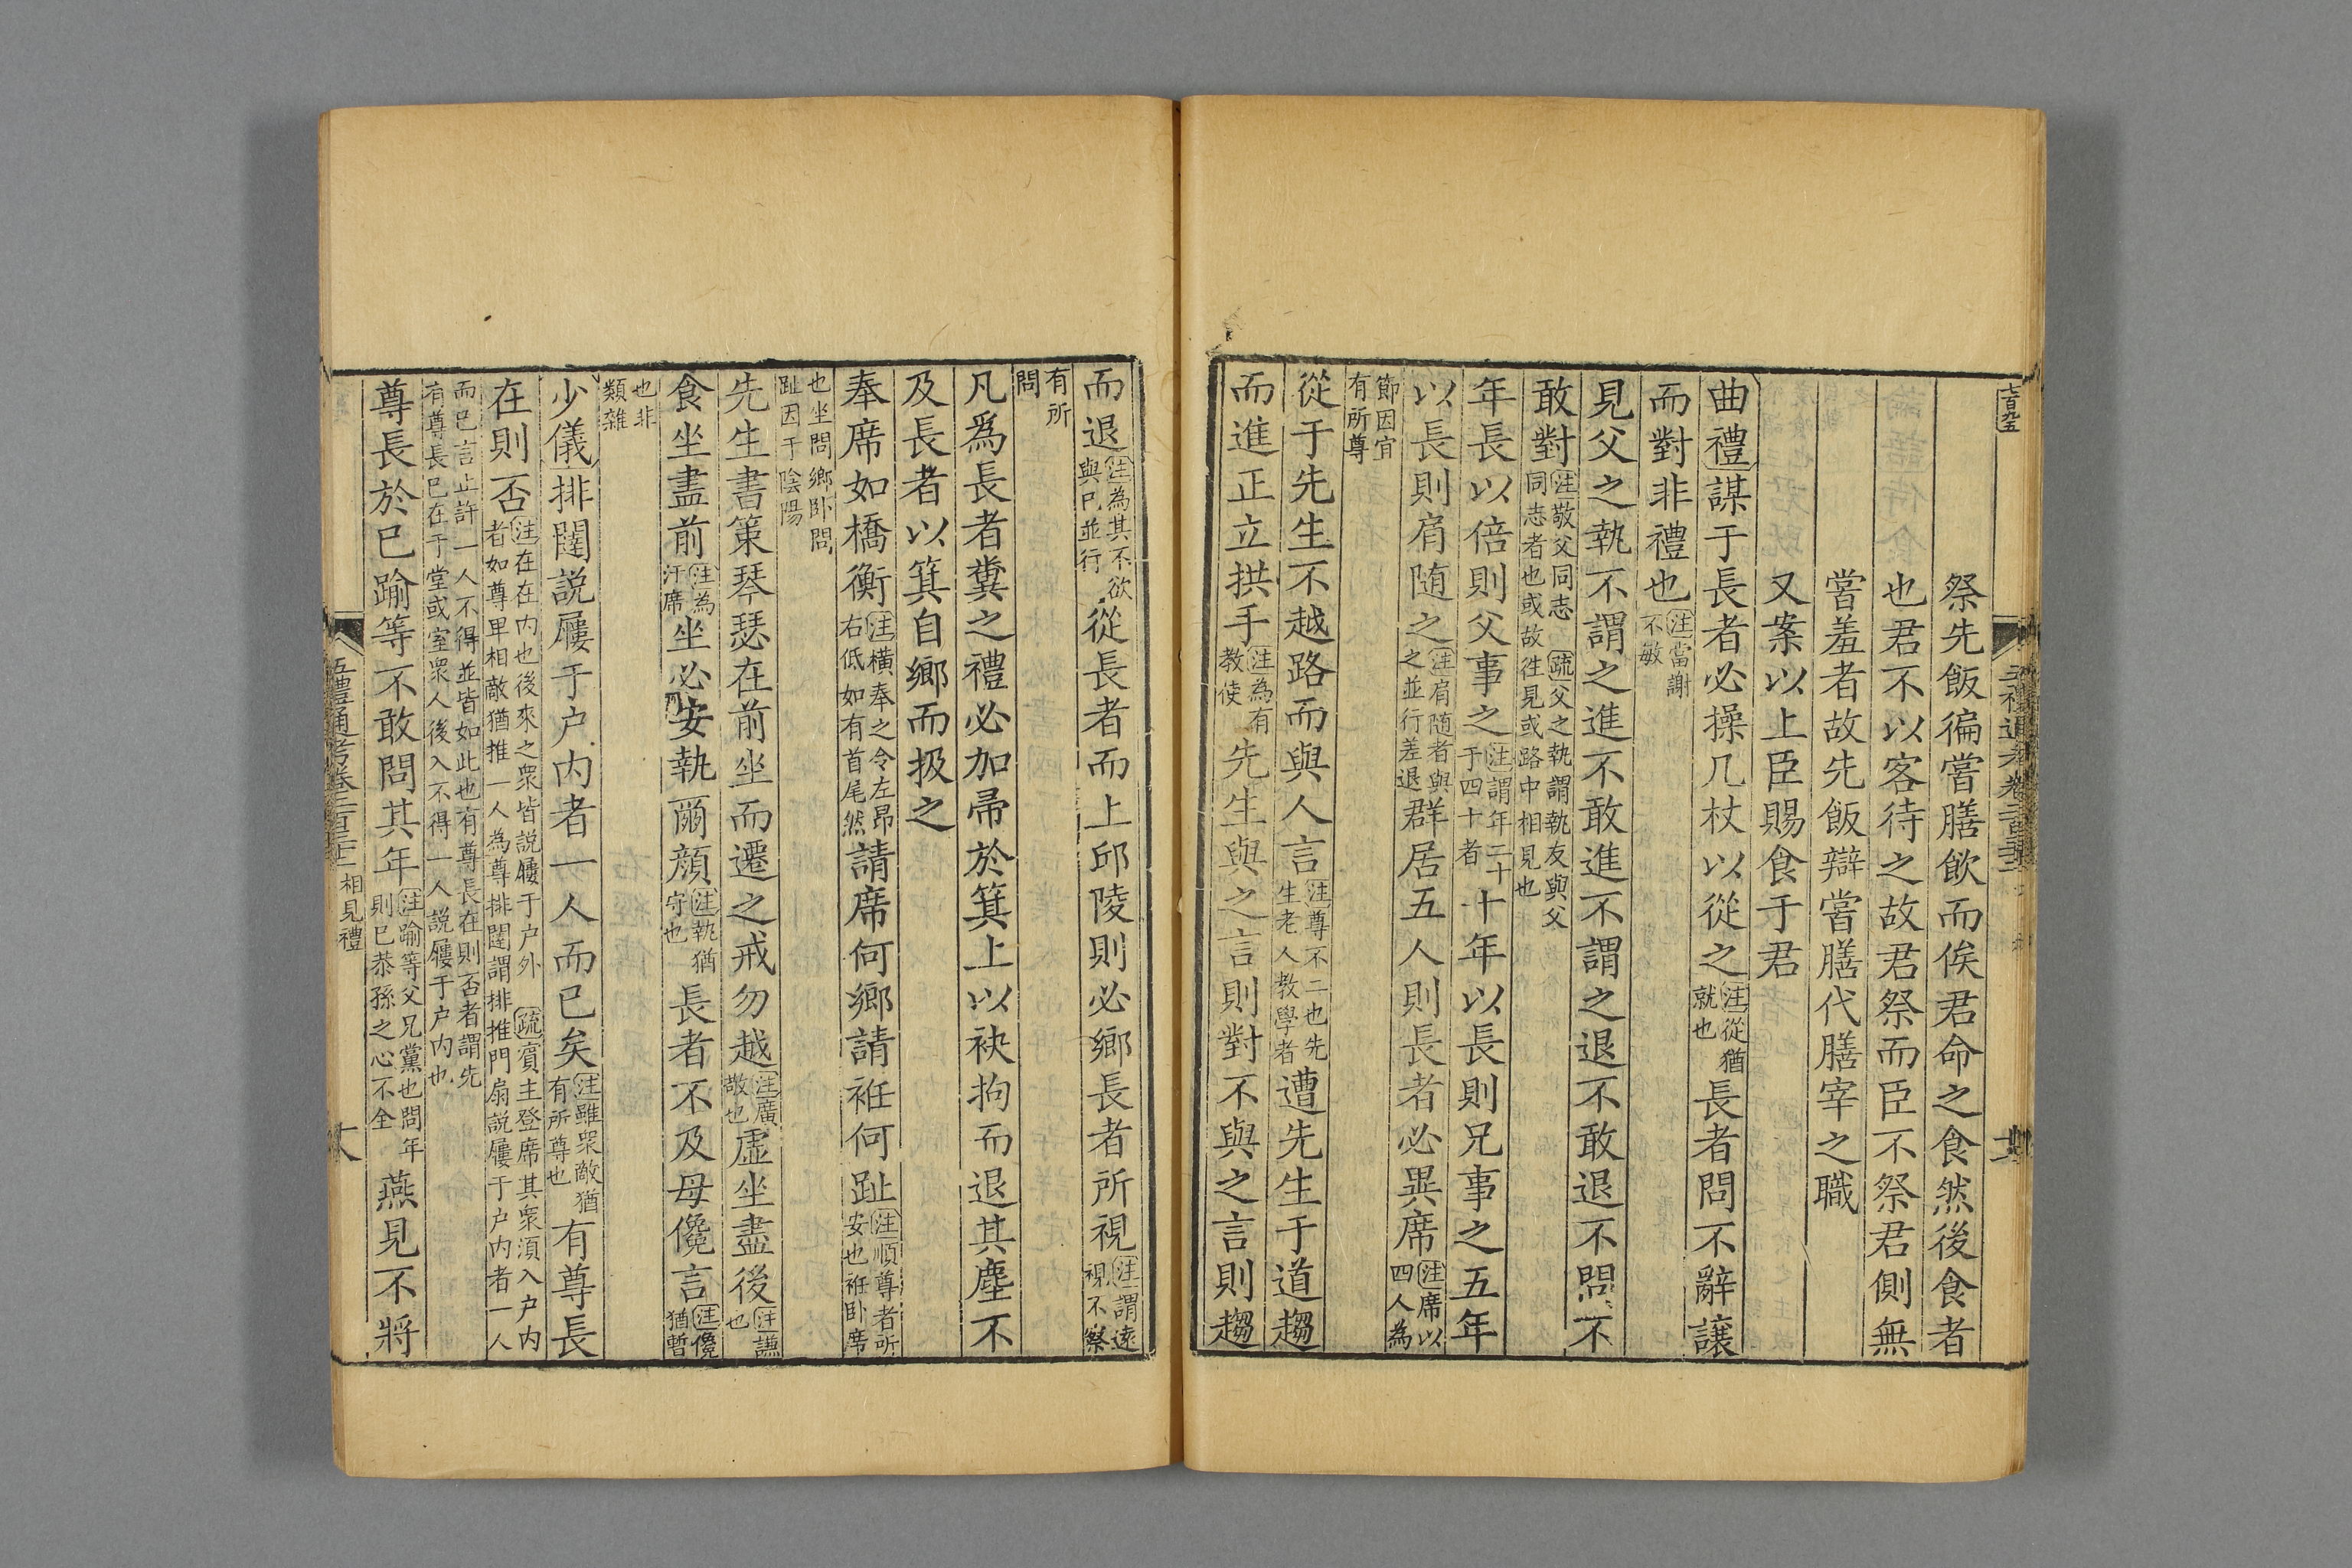 祭先飯徧嘗膳飲而俟君之命之食然後食者
也君不以客待之故君祭而臣不祭君側無
嘗羞者故先飯辯嘗膳代膳宰之職
又案以上臣賜食于君
曲禮謀于長者必操几杖以從之注從猶就也長者問不辭讓
而對非禮也注當謝不敏
見父之執不謂之進不敢進不謂之退不敢退不問不
敢對注敬父同志同志者也或故往見或路中相見也疏父之執謂執友與父
年長以倍則父事之注謂年二十于四十者十年以長則兄事之五年
以長則肩随之注肩随者與之並行差退群居五人則長者必異席注席以四人為
節因宜有所尊
從于先生不越路而與人言注尊不二也先生老人教學者遭先生于道趨
而進正立拱手注為有教使先生與之言則對不與之言則趨
而退注為其不欲與已並行從長者而上邱陵則必鄉長者所視注謂遠視不察
有所問
凡爲長者糞之禮必加帚於箕上以袂拘而退其塵不
及長者以箕自鄉而扱之
奉席如橋衡注橫奉之令左昂右低如有首尾然請席何鄉請袵何趾注順尊者所安也袵卧席
也坐問鄉卧問趾因于陰陽
先生書策琴瑟在前坐而遷之戒勿越注廣敬也虛坐盡後注謙也
食坐盡前注為汙席坐必安執爾顏注執猶守也長者不及毋儳言注儳猶暫
也非類雜
少儀排闔説屨于户内者一人而已矣注雖衆敵猶有所尊也有尊長
在則否注在在内也後來之衆皆説屨于户外疏賓主登席其衆須入户内者如尊卑相敵猶推一人為尊排闔謂排推門扇説屨于户内者一人
而已言止許一人不得並皆如此也有尊長在則否者謂先有尊長已在于堂或室衆人後入不得一人説屨于户内也
尊長於已踰等不敢問其年注踰等父兄黨也問年則已恭孫之心不全燕見不將
五禮通考卷二百三十二 相見禮